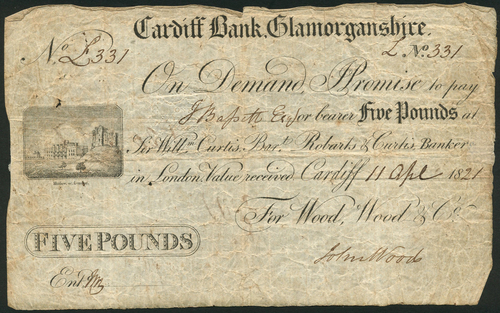 Cardiff Bank, Glamorganshire.
No. £331
£ No. 331
On Demand I Promise to pay
J Bassett Esqr or bearer Five Pounds at
Sir Willm. Curtis, Bart. Robarts & Curtis, Banker
in London Value received Cardiff 11 Apl 1821
For Wood, Wood & Co.
FIVE POUNDS
John Woods
Entd.